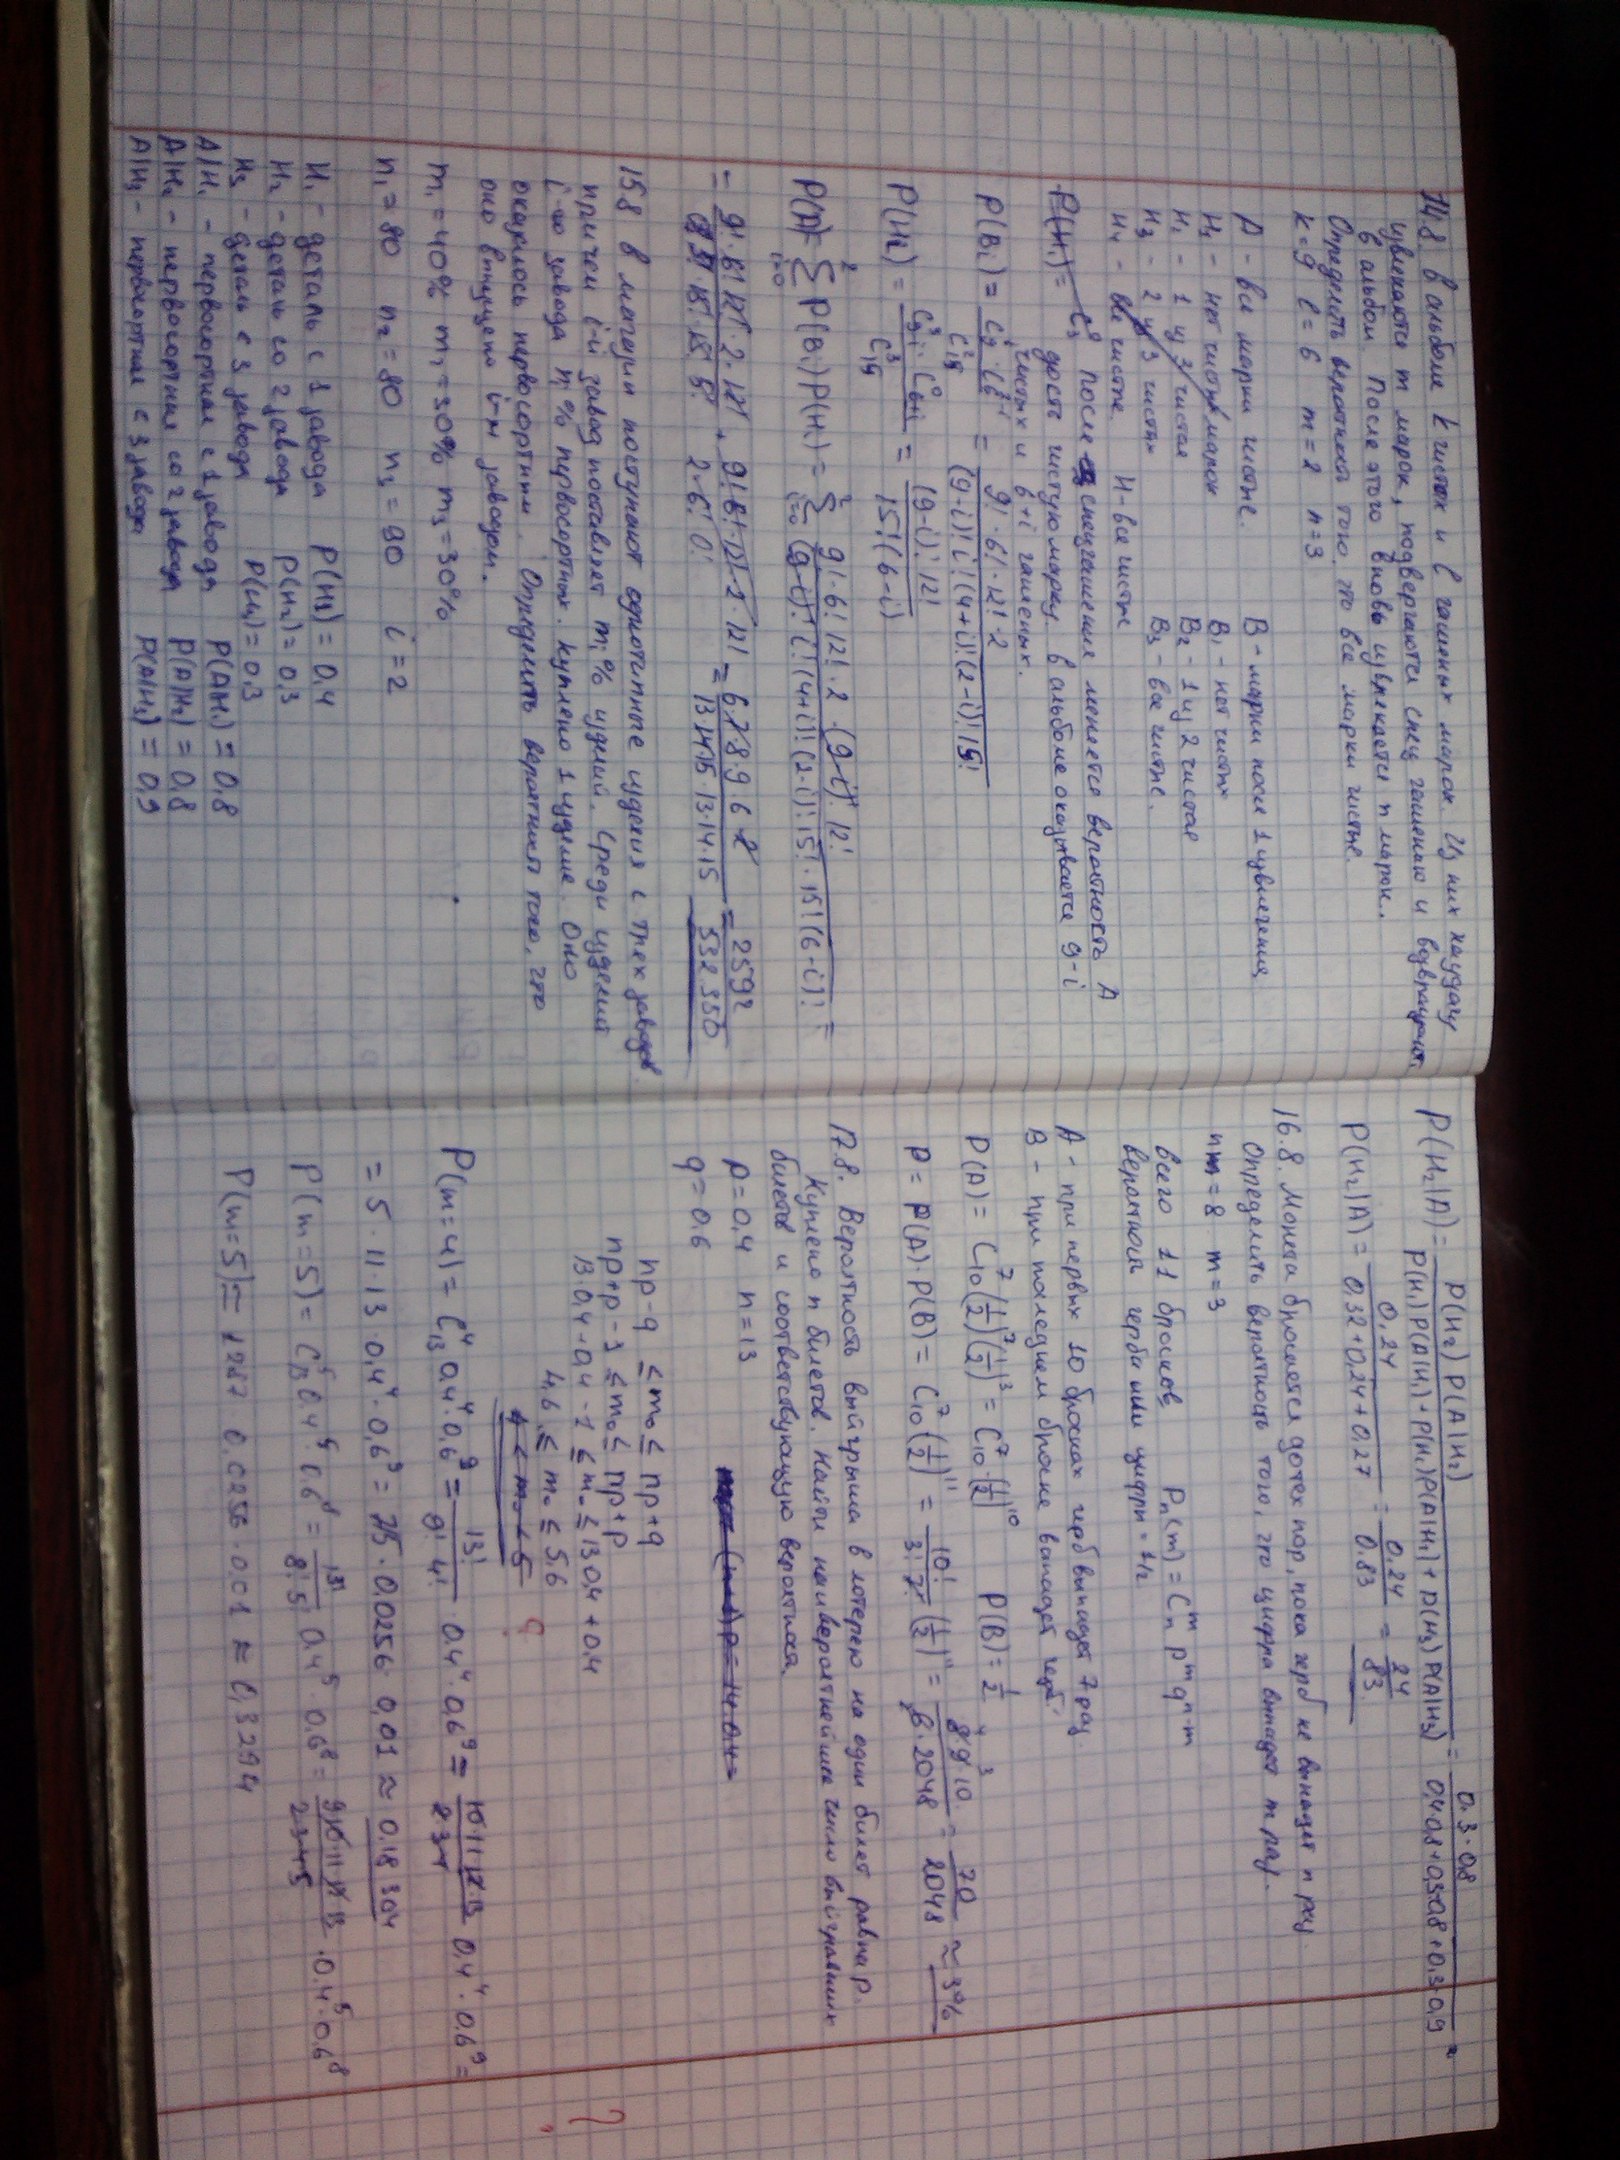 14.8 В альбоме k чистых и l гашеных марок. Из них наудачу
извлекаются m марок, подвергаются спец гашению и возвращают.
в альбом. После этого вновь извлекается n марок.
Определить вероятность того, что все марки чистые.
k=9 l=6 m=2 n=3
A - все марки чистые. B - марки после 1 извлечения
H₁ - нет чистых марок B₁ - нет чистых
H₂ - 1 из 3 чистая B₂ - 1 из 2 чистая
H₃ - 2 из 3 чистых B₃ - все чистые.
H₄ - все чистые. H - все чистые
P(H₁) = C₃⁹ После спецгашения меняется вероятность A
дость чистую марку. в альбоме оказывается 9-i
чистых и 6+i гашеных.
P(Bi) = = 9! · 6! · 12! · 2 / (9-i)! i! (4+i)! (2-i)! 15!
P(H₂) = = (9-i)! 12! / 15! (6-i)
P(A) = Σ P(Bi) P(Hi) = Σ 9! · 6! 12! · 2 · (9-i)! 12! / (9-i)! i! (4+i)! (2-i)! 15! · 15! (6-i)! =
= = 6·7·8·9·6·2 / 13·14·15·13·14·15 = 2592 / 532350
15.8 В магазин поступают однотипные изделия с трех заводов
причем i-й завод поставляет mi% изделий. Среди изделий
i-го завода ni% первосортных. Куплено 1 изделие. Оно
оказалось первосортным. Определить вероятность того, что
оно выпущено i-м заводом.
m₁=40% m₂=30% m₃=30%
n₁=80 n₂=80 n₃=90 i=2
H₁ - деталь с 1 завода P(H1) = 0,4
H₂ - деталь со 2 завода P(H₂) = 0,3
H₃ - деталь с 3 завода P(H₃) = 0,3
A|H₁ - первосортная с 1 завода P(A|H₁) = 0,8
A|H₂ - первосортная со 2 завода P(A|H₂) = 0,8
A|H₃ - первосортная с 3 завода P(A|H₃) = 0,9
P(H₂|A) = P(H₂) P(A|H₂) / P(H₁) P(A|H₁) + P(H₂) P(A|H₂) + P(H₃) P(A|H₃) = 0,3·0,8 / 0,4·0,8+0,3·0,8+0,3·0,9 =
P(H₂|A) = 0,24 / 0,32+0,24+0,27 = 0,24 / 0.83 = 24 / 83
16.8. Монета бросается до тех пор, пока герб не выпадет n раз.
Определить вероятность того, что цифра выпадет m раз.
n = 8 m = 3
всего 11 бросков Pₙ(m) = Cₙᵐ pᵐ qⁿ⁻ᵐ
вероятность герба или цифры = 1/2
A - при первых 10 бросках герб выпадет 7 раз
B - при последнем броске выпадет герб.
P(A) = C₁₀⁷ (1/2)⁷ (1/2)³ = C₁₀⁷ · (1/2)¹⁰ P(B) = 1/2
P = P(A)·P(B) = C₁₀⁷ (1/2)¹¹ = 10! / 3! 7! (1/2)¹¹ = 8·9·10 / 6·2048 = 70 / 2048 ≈ 3%
17.8. Вероятность выигрыша в лотерею на один билет равна p.
Куплено n билетов. Найти наивероятнейшее число выигравших
билетов и соответствующую вероятность.
p = 0,4 n = 13 (n+1)p = 14·0,4=
q = 0,6
np-q ≤ m₀ ≤ np+q
np+p-1 ≤ m₀ ≤ np+p
13·0,4+0,4-1 ≤ m₀ ≤ 13·0,4+0,4
4,6 ≤ m₀ ≤ 5,6 ?
4 < m₀ < 5 ?
P(m=4) = C₁₃⁴ 0,4⁴·0,6⁹ = 13! / 9! 4! · 0,4⁴·0,6⁹ = 10·11·12·13 / 2·3·4 0,4⁴·0,6⁹ =
= 5·11·13·0,4⁴·0,6⁹ = 715·0,0256·0,01 ≈ 0,18304
P(m=5) = C₁₃⁵ 0.4⁵·0,6⁸ = 13! / 8! 5! 0,4⁵·0,6⁸ = 9·10·11·12·13 / 2·3·4·5 ·0.4⁵·0,6⁸
P(m=5) ≈ 1287·0,0256·0,01 ≈ 0,3294